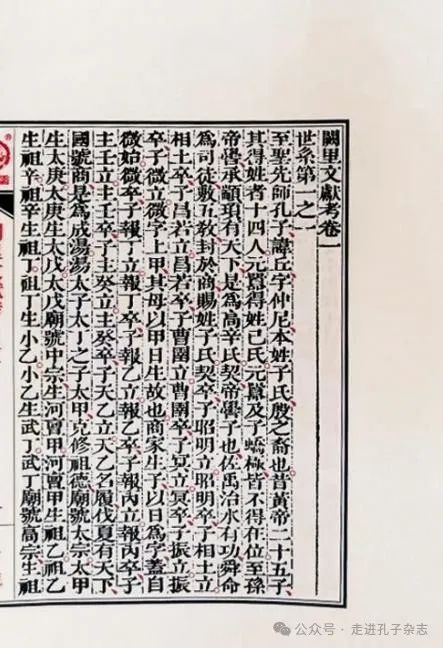 闕里文獻考卷一
世系第一之一
至聖先師孔子諱丘字仲尼本姓子氏殷之裔也昔黃帝二十五子
其得姓者十四人元囂得姓己氏元囂及子蟜極皆不得在位至孫
帝嚳承顓頊有天下是為高辛氏契帝嚳子也佐禹治水有功舜命
為司徒敷五教封於商賜姓子氏契卒子昭明立昭明卒子相土立
相土卒子昌若立昌若卒子曹圉立曹圉卒子冥立冥卒子振立振
卒子微立微字上甲其母以甲日生故也商家生子以日為字蓋自
微始微卒子報丁立報丁卒子報乙立報乙卒子報丙立報丙卒子
主壬立主壬卒子主癸立主癸卒子天乙立天乙名履伐夏有天下
國號商是為成湯湯太子太丁之子太甲克修祖德廟號太宗太甲
生太庚太庚生太戊太戊廟號中宗生河亶甲河亶甲生祖乙祖乙
生祖辛祖辛生祖丁祖丁生小乙小乙生武丁武丁廟號高宗生祖
公众号 · 走进孔子杂志